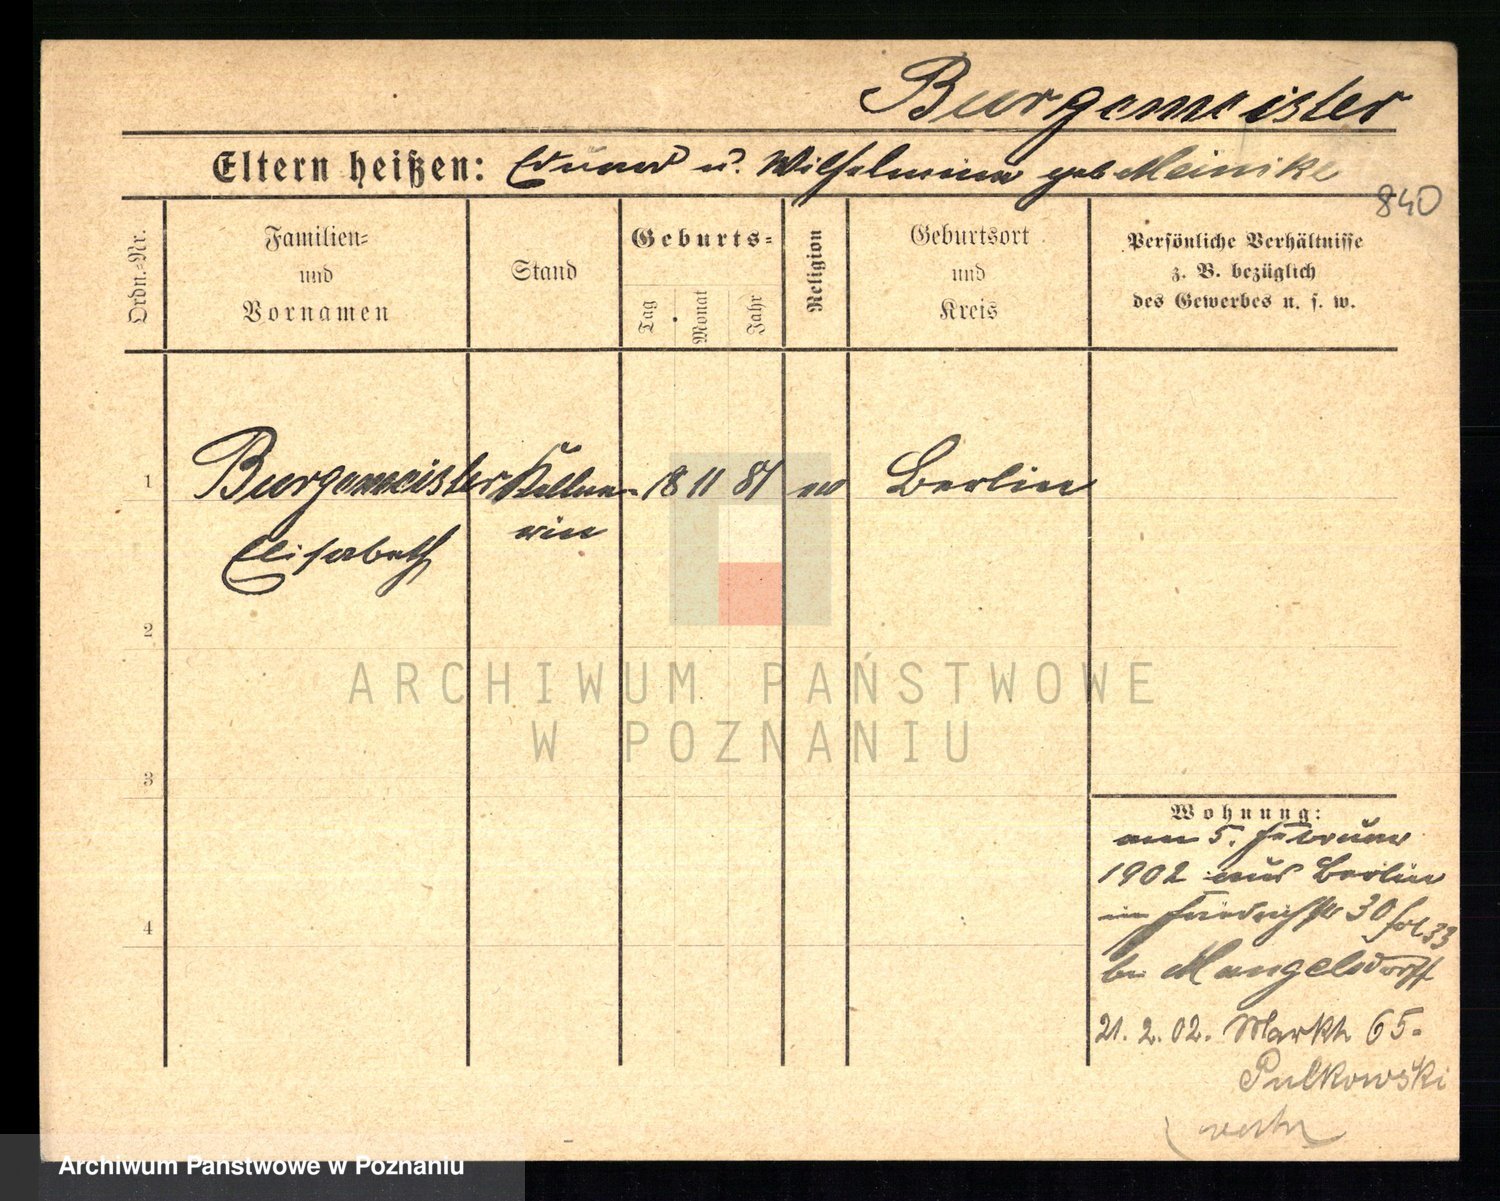 Burgemeister
Eltern heißen: Eduard u. Wilhelmine geb Meinike
840
Ordn.-Nr.
Familien-
und
Vornamen
Stand
Geburts-
Tag
Monat
Jahr
Religion
Geburtsort
und
Kreis
Persönliche Verhältnisse
z. B. bezüglich
des Gewerbes u. s. w.
1 Burgemeister Kellne- 18 11 81 ev Berlin
Elisabeth rin
2
3
4
Wohnung:
am 5. Februar
1902 aus Berlin
in Friedrichstr 30 fol 33
bei Mangelsdorff
21. 2. 02. Markt 65.
Pulkowski
ARCHIWUM PAŃSTWOWE
W POZNANIU
Archiwum Państwowe w Poznaniu